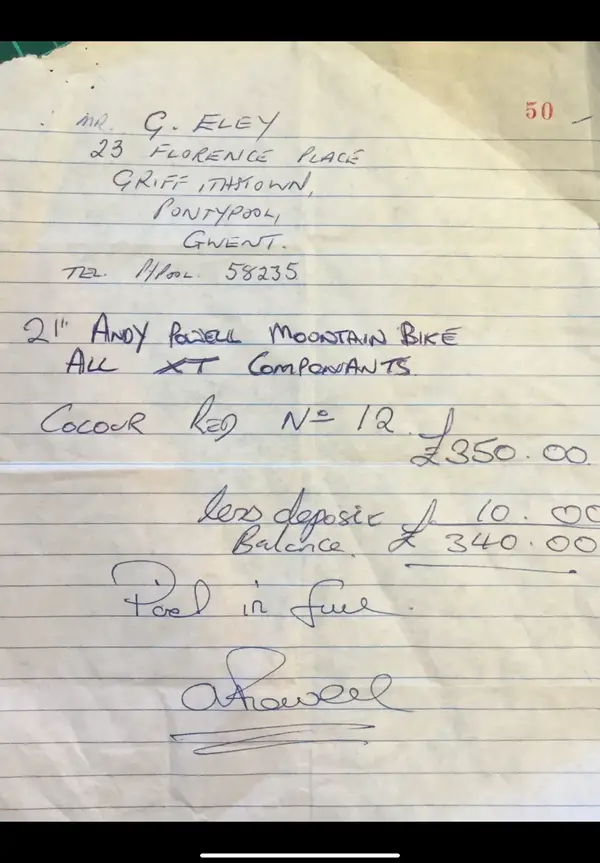 50
MR. G. ELEY
23 FLORENCE PLACE
GRIFFITHSTOWN,
PONTYPOOL,
GWENT.
TEL. P/POOL. 58235
21" ANDY POWELL MOONTAIN BIKE
ALL XT COMPONANTS
COLOUR RED No 12
£350.00
less deposit £ 10.00
Balance. £ 340.00
Paid in full.
A Powell